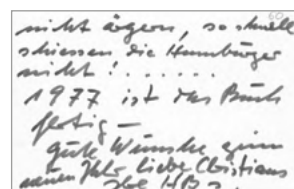 nicht ärgern, so schnell
schiessen die Hamburger
nicht! ......
1977 ist das Buch
fertig –
gute Wünsche zum
neuen Jahr liebe Christians